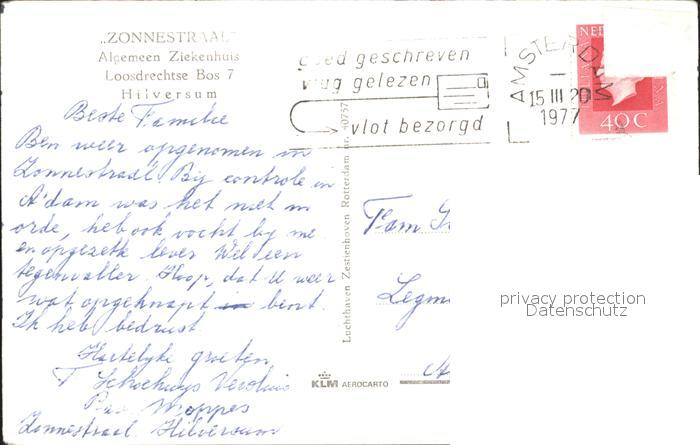 „ZONNESTRAAL"
Algemeen Ziekenhuis
Loosdrechtse Bos 7
Hilversum
Beste Familie
Ben weer opgenomen in
Zonnestraal. Bij controle in
A'dam was het niet in
orde, heb ook vocht bij me
en opgezette lever Wel een
tegenvaller. Hoop, dat U weer
wat opgeknapt bent.
Ik heb bedrust
Hartelijke groeten
T
Zonnestraal Hilversum
Luchthaven Zestienhoven Rotterdam nr. 40757
KLM AEROCARTO
goed geschreven
vlug gelezen
vlot bezorgd
AMSTERDAM
15 III 20
1977
NED
40 C
Fam
Legm
privacy protection
Datenschutz